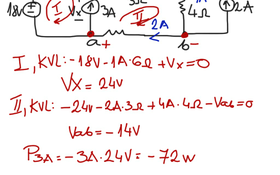 18v I Vx 3A 3Ω 4Ω 2A
II 2A
a + b -
I, KVL: -18V-1A·6Ω+Vx=0
Vx = 24v
II, KVL: -24v-2A·3Ω+4A·4Ω-Vab=0
Vab = -14V
P3A = -3A·24V = -72w